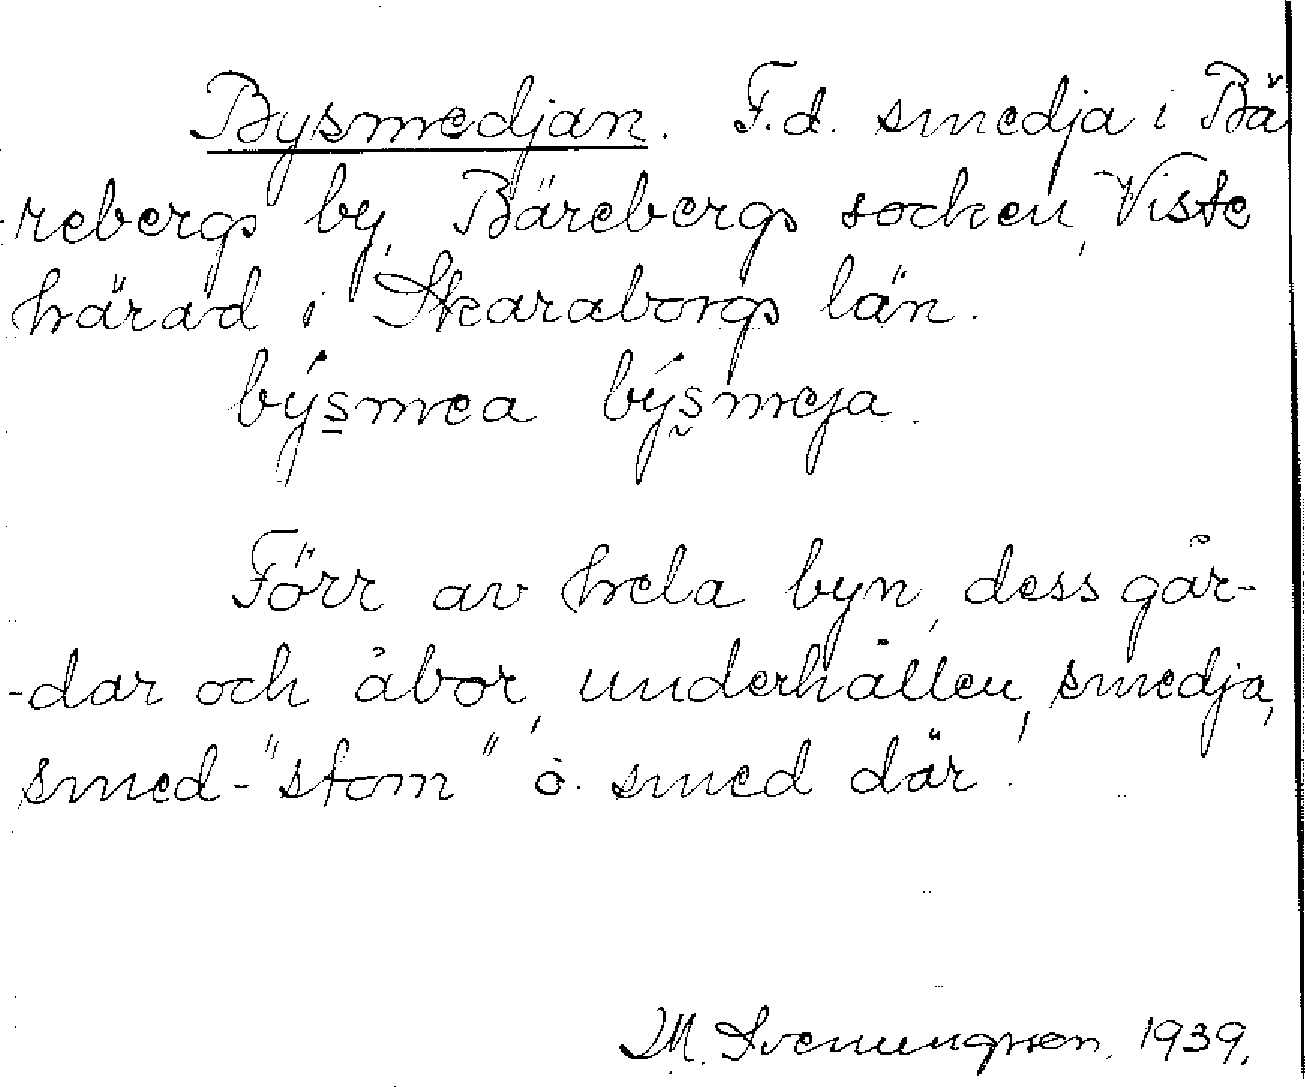 Bysmedjan. F.d. smedja i Bä
-rebergs by, Bärebergs socken, Viste
härad i Skaraborgs län.
býs̲mea býs̰meja.
Förr av hela byn, dess går-
-dar och åbor, underhållen, smedja,
smed-"stom" o. smed där.
M. Svenungsson. 1939.